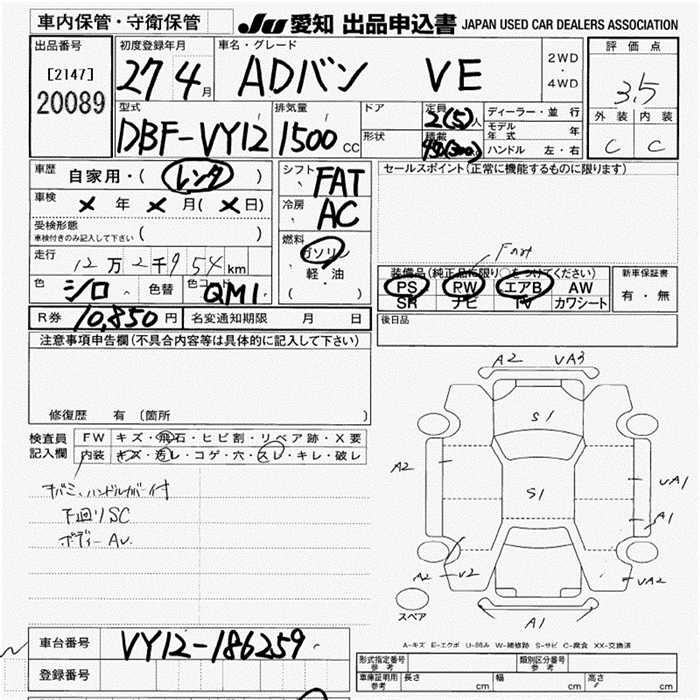 車内保管・守衛保管
JU 愛知 出品申込書 JAPAN USED CAR DEALERS ASSOCIATION
出品番号
[2147]
20089
初度登録年月
27 4月
車名・グレード
ADバン VE
2WD
・
4WD
評価点
3.5
外装 内装
C C
型式
DBF-VY12
排気量
1500 CC
ドア
形状
定員
2(5)人
積載
ディーラー・並行
モデル年式 年
ハンドル 左・右
車歴
自家用・(レンタ)
車検
× 年 × 月(×日)
受検形態
車検付きのみ記入して下さい ( )
走行
12万2千954km
色
シロ
色替
色コード
QM1
シフト
FAT
冷房
AC
燃料
ガソリン
軽・油
( )
セールスポイント(正常に機能するものに限ります)
装備品(純正品に限り○をつけてください)
PS PW エアB AW
SR ナビ TV カワシート
新車保証書
有・無
R券 10,850円 名変通知期限 月 日
後日品
注意事項申告欄(不具合内容等は具体的に記入して下さい)
修復歴 有 (箇所
検査員記入欄
FW キズ・飛石・ヒビ割・リペア跡・X要
内装 キズ・汚レ・コゲ・穴・スレ・キレ・破レ
下回りSC
ボディーAU
A2 VA3
S1
A2
S1
UA1
A1
A2 V2
VA2
A1
スペア
A-キズ E-エクボ U-凹み W-補修跡 S-サビ C-腐食 XX-交換済
車台番号
VY12-186259
登録番号
形式指定番号
参考
類別区分番号
参考
車庫証明用
参考
長さ cm 幅 cm 高さ cm